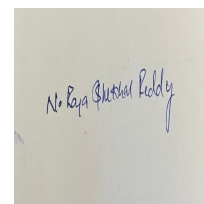 N. Raja Shekhar Reddy